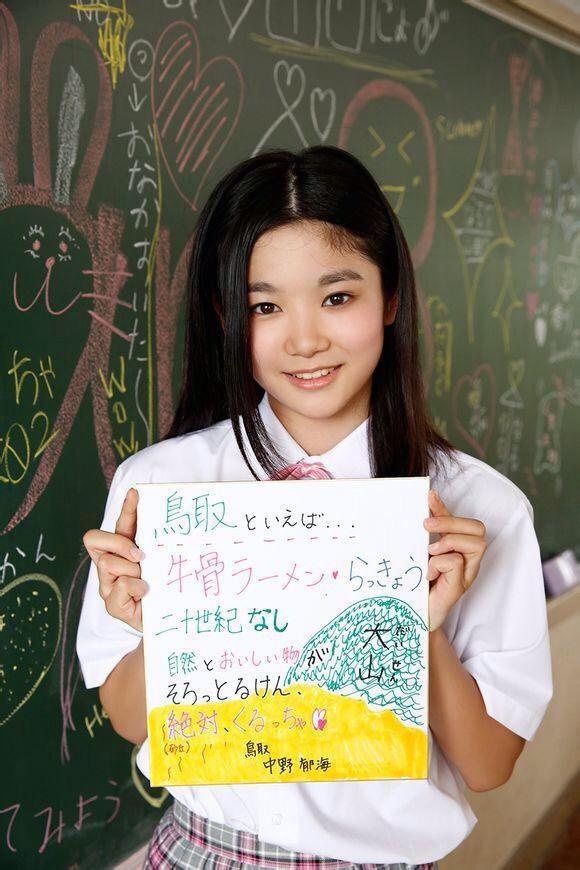 鳥取といえば...
牛骨ラーメン・らっきょう
二十世紀なし
自然とおいしい物が
大山
だいせん
そろっとるけん、
絶対、くるっちゃ
(砂丘)
鳥取
中野 郁海
おなかすいた
ちゃ
WOW
Summer
かん
てみよう